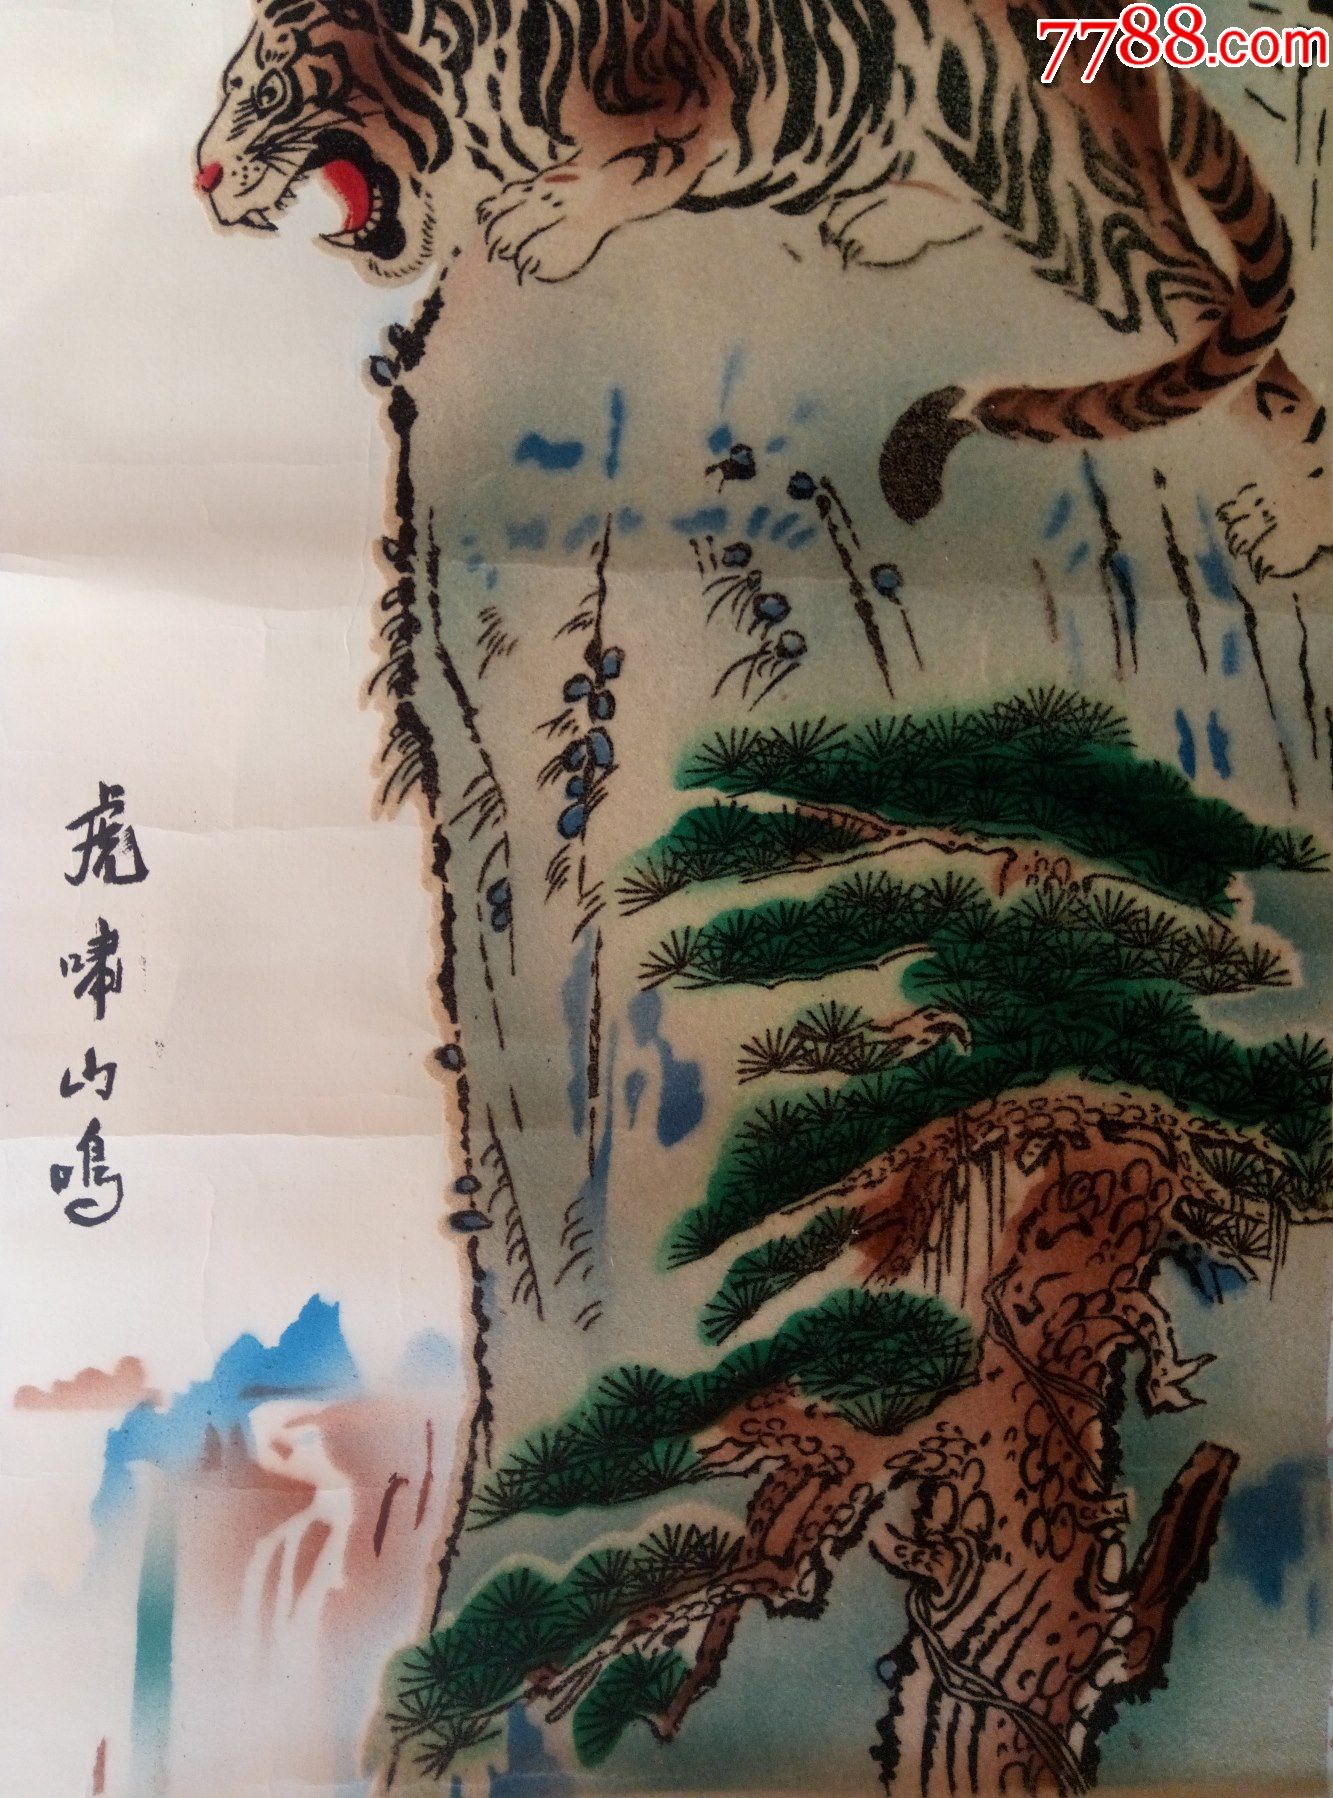 7788.com
虎啸山鸣